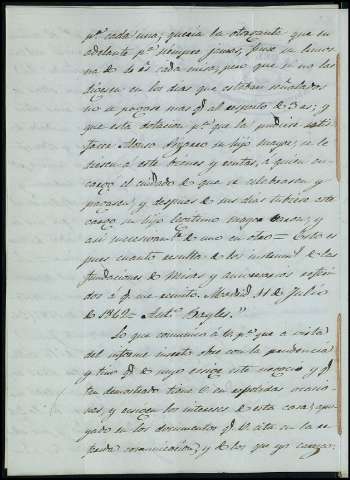 pr. cada una; queria la otorgante que en
adelante pa. siempre jamas, fuese la limos
na de 4 rs. cada misa, pero que si no las
dixesen en los dias que estaban señalados
no se pagase mas q. al respecto de 3 rs; y
que esta dotacion pa. que la pudiese satis
facer Alonso su hijo mayor, se le
diesen a este bienes y rentas, a quien en-
cargó el cuidado de que se celebrasen y
pagasen, y despues de sus dias tubiese este
cargo su hijo legitimo mayor varon, y
asi sucesivamte. de uno en otro = Esto es
pues cuanto resulta de los instrumtos. de las
fundaciones de Misas y aniversarios referi
dos á q. me remito. Madrid 11 de Julio
de 1862 = Anto.
Lo que comunico á V. pa. que a vista
del informe inserto obre con la prudencia
y tino q. de suyo exige este negocio y q.
tan demostrado tiene V. en repetidas ocasio
nes, y exigen los intereses de esta casa; apo-
yado en los documentos q. V. cita en la ex-
presada comunicacion, y de los que yo carezco.